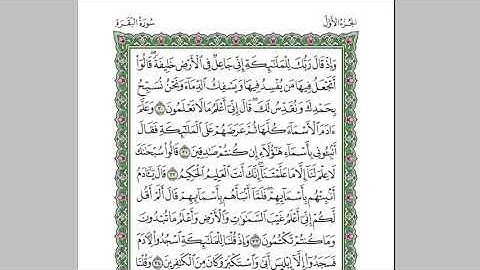 الجزء الأول
سورة البقرة
وَإِذْ قَالَ رَبُّكَ لِلْمَلَٰٓئِكَةِ إِنِّى جَاعِلٌ فِى ٱلْأَرْضِ خَلِيفَةً ۖ قَالُوٓا۟
أَتَجْعَلُ فِيهَا مَن يُفْسِدُ فِيهَا وَيَسْفِكُ ٱلدِّمَآءَ وَنَحْنُ نُسَبِّحُ
بِحَمْدِكَ وَنُقَدِّسُ لَكَ ۖ قَالَ إِنِّىٓ أَعْلَمُ مَا لَا تَعْلَمُونَ ٣٠ وَعَلَّمَ
ءَادَمَ ٱلْأَسْمَآءَ كُلَّهَا ثُمَّ عَرَضَهُمْ عَلَى ٱلْمَلَٰٓئِكَةِ فَقَالَ
أَنۢبِـُٔونِى بِأَسْمَآءِ هَٰٓؤُلَآءِ إِن كُنتُمْ صَٰدِقِينَ ٣١ قَالُوا۟ سُبْحَٰنَكَ
لَا عِلْمَ لَنَآ إِلَّا مَا عَلَّمْتَنَآ ۖ إِنَّكَ أَنتَ ٱلْعَلِيمُ ٱلْحَكِيمُ ٣٢ قَالَ يَٰٓـَٔادَمُ
أَنۢبِئْهُم بِأَسْمَآئِهِمْ ۖ فَلَمَّآ أَنۢبَأَهُم بِأَسْمَآئِهِمْ قَالَ أَلَمْ أَقُل
لَّكُمْ إِنِّىٓ أَعْلَمُ غَيْبَ ٱلسَّمَٰوَٰتِ وَٱلْأَرْضِ وَأَعْلَمُ مَا تُبْدُونَ
وَمَا كُنتُمْ تَكْتُمُونَ ٣٣ وَإِذْ قُلْنَا لِلْمَلَٰٓئِكَةِ ٱسْجُدُوا۟ لِءَادَمَ
فَسَجَدُوٓا۟ إِلَّآ إِبْلِيسَ أَبَىٰ وَٱسْتَكْبَرَ وَكَانَ مِنَ ٱلْكَٰفِرِينَ ٣٤ وَقُلْنَا